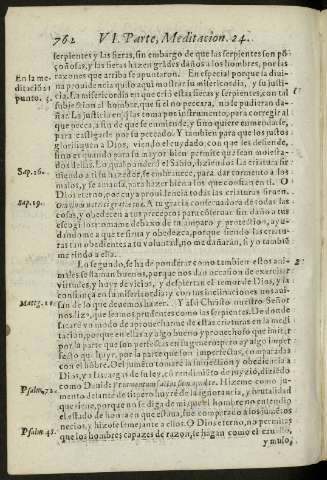 762 VI. Parte, Meditacion. 24.
serpientes y las fieras, sin embargo de que las serpientes son pō
çoñosas, y las fieras hazen grādes daños a los hombres, por las
En la me razones que arriba se apuntaron. En especial porque la diui-
ditació 21 na prouidencia quiso aqui mostrar su misericordia, y su justi-
punto. 5. cia. La misericordia en que criò estas fieras y serpientes, con tal
subjecion al hombre, que si el no peccara, no le pudieran da-
ñar. La justicia en las toma por instrumento, para corregir al
que pecca, a fin de que se enmiende, y sino quiere enmendarse,
para castigarle por su peccado. Y tambien para que los justos
glorifiquen a Dios, viendo el cuydado, con que les defiende,
sino es quando para su mayor bien permite que sean molesta-
dos dellas. Lo qual ponderò el Sabio, diziendo: Las criaturas sir
Sap. 16. uiendo a ti su hazedor, se embrauece, para dar tormento a los
malos, y se amansa, para hazer bien a los que confian en ti. O
Dios eterno, por cuya prouidencia todas las criaturas siruen
Sap. 19. A tu gracia conseruadora de todas las
cosas, y obedecen a tus preceptos para conseruar sin daño a tus
escogidos: tomame debaxo de tu amparo y protection, ayu-
dandome a que te sirua y obedezca, porque siendo las criatu-
ras tan obedientes a tu voluntad, no me dañaràn, si yo tambiē
me rindo a ella.
Lo segundo, se ha de ponderar como tambien estos ani- 2
males se llaman buenos, porque nos dan occasion de exercitar
virtudes, y huyr de vicios, y despiertan el temor de Dios, y la
confiança en su misericordia y con sus inclinaciones nos aui-
Matt. 10. san de lo que deuemos hazer. Y assi Christo nuestro Señor
nos dize, que seamos prudentes como las serpientes. De donde
sacarè vn modo de aprouecharme de estas criaturas en la medi-
tacion, porque en ellas ay algo bueno y prouechoso que imitar,
por la parte que son perfectas en su genero: pero ay algo imper
fecto que huyr, por la parte que son imperfectas, comparadas
con el hombre. Del jumēto tomarè la subjection y obediencia a
Dios, y a la carga de su ley, cō rendimiēto de juyzio, diziēdo
Psalm. 72. como Dauid: Hizeme como ju-
mento delante de ti: pero huyrè de la ignorancia, y brutalidad
que tiene, porque no se diga de mi, que el hombre no entendio
el estado de honra en que estaua, fue comparado a los jumētos
Psalm. 48. necios, y hizose semejante a ellos. O Dios eterno, no permitas
que los hombres capazes de razon, se hagan como el cauallo,
y mulo,